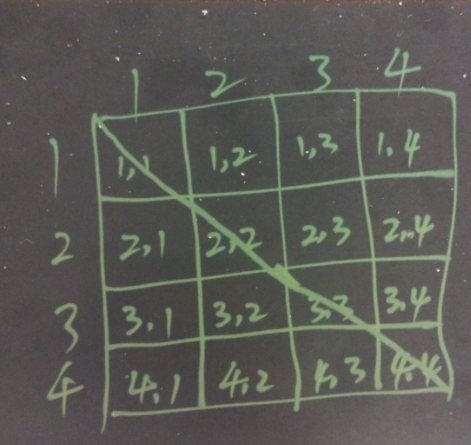 1 2 3 4
1 1,1 1,2 1,3 1,4
2 2,1 2,2 2,3 2,4
3 3,1 3,2 3,3 3,4
4 4,1 4,2 4,3 4,4